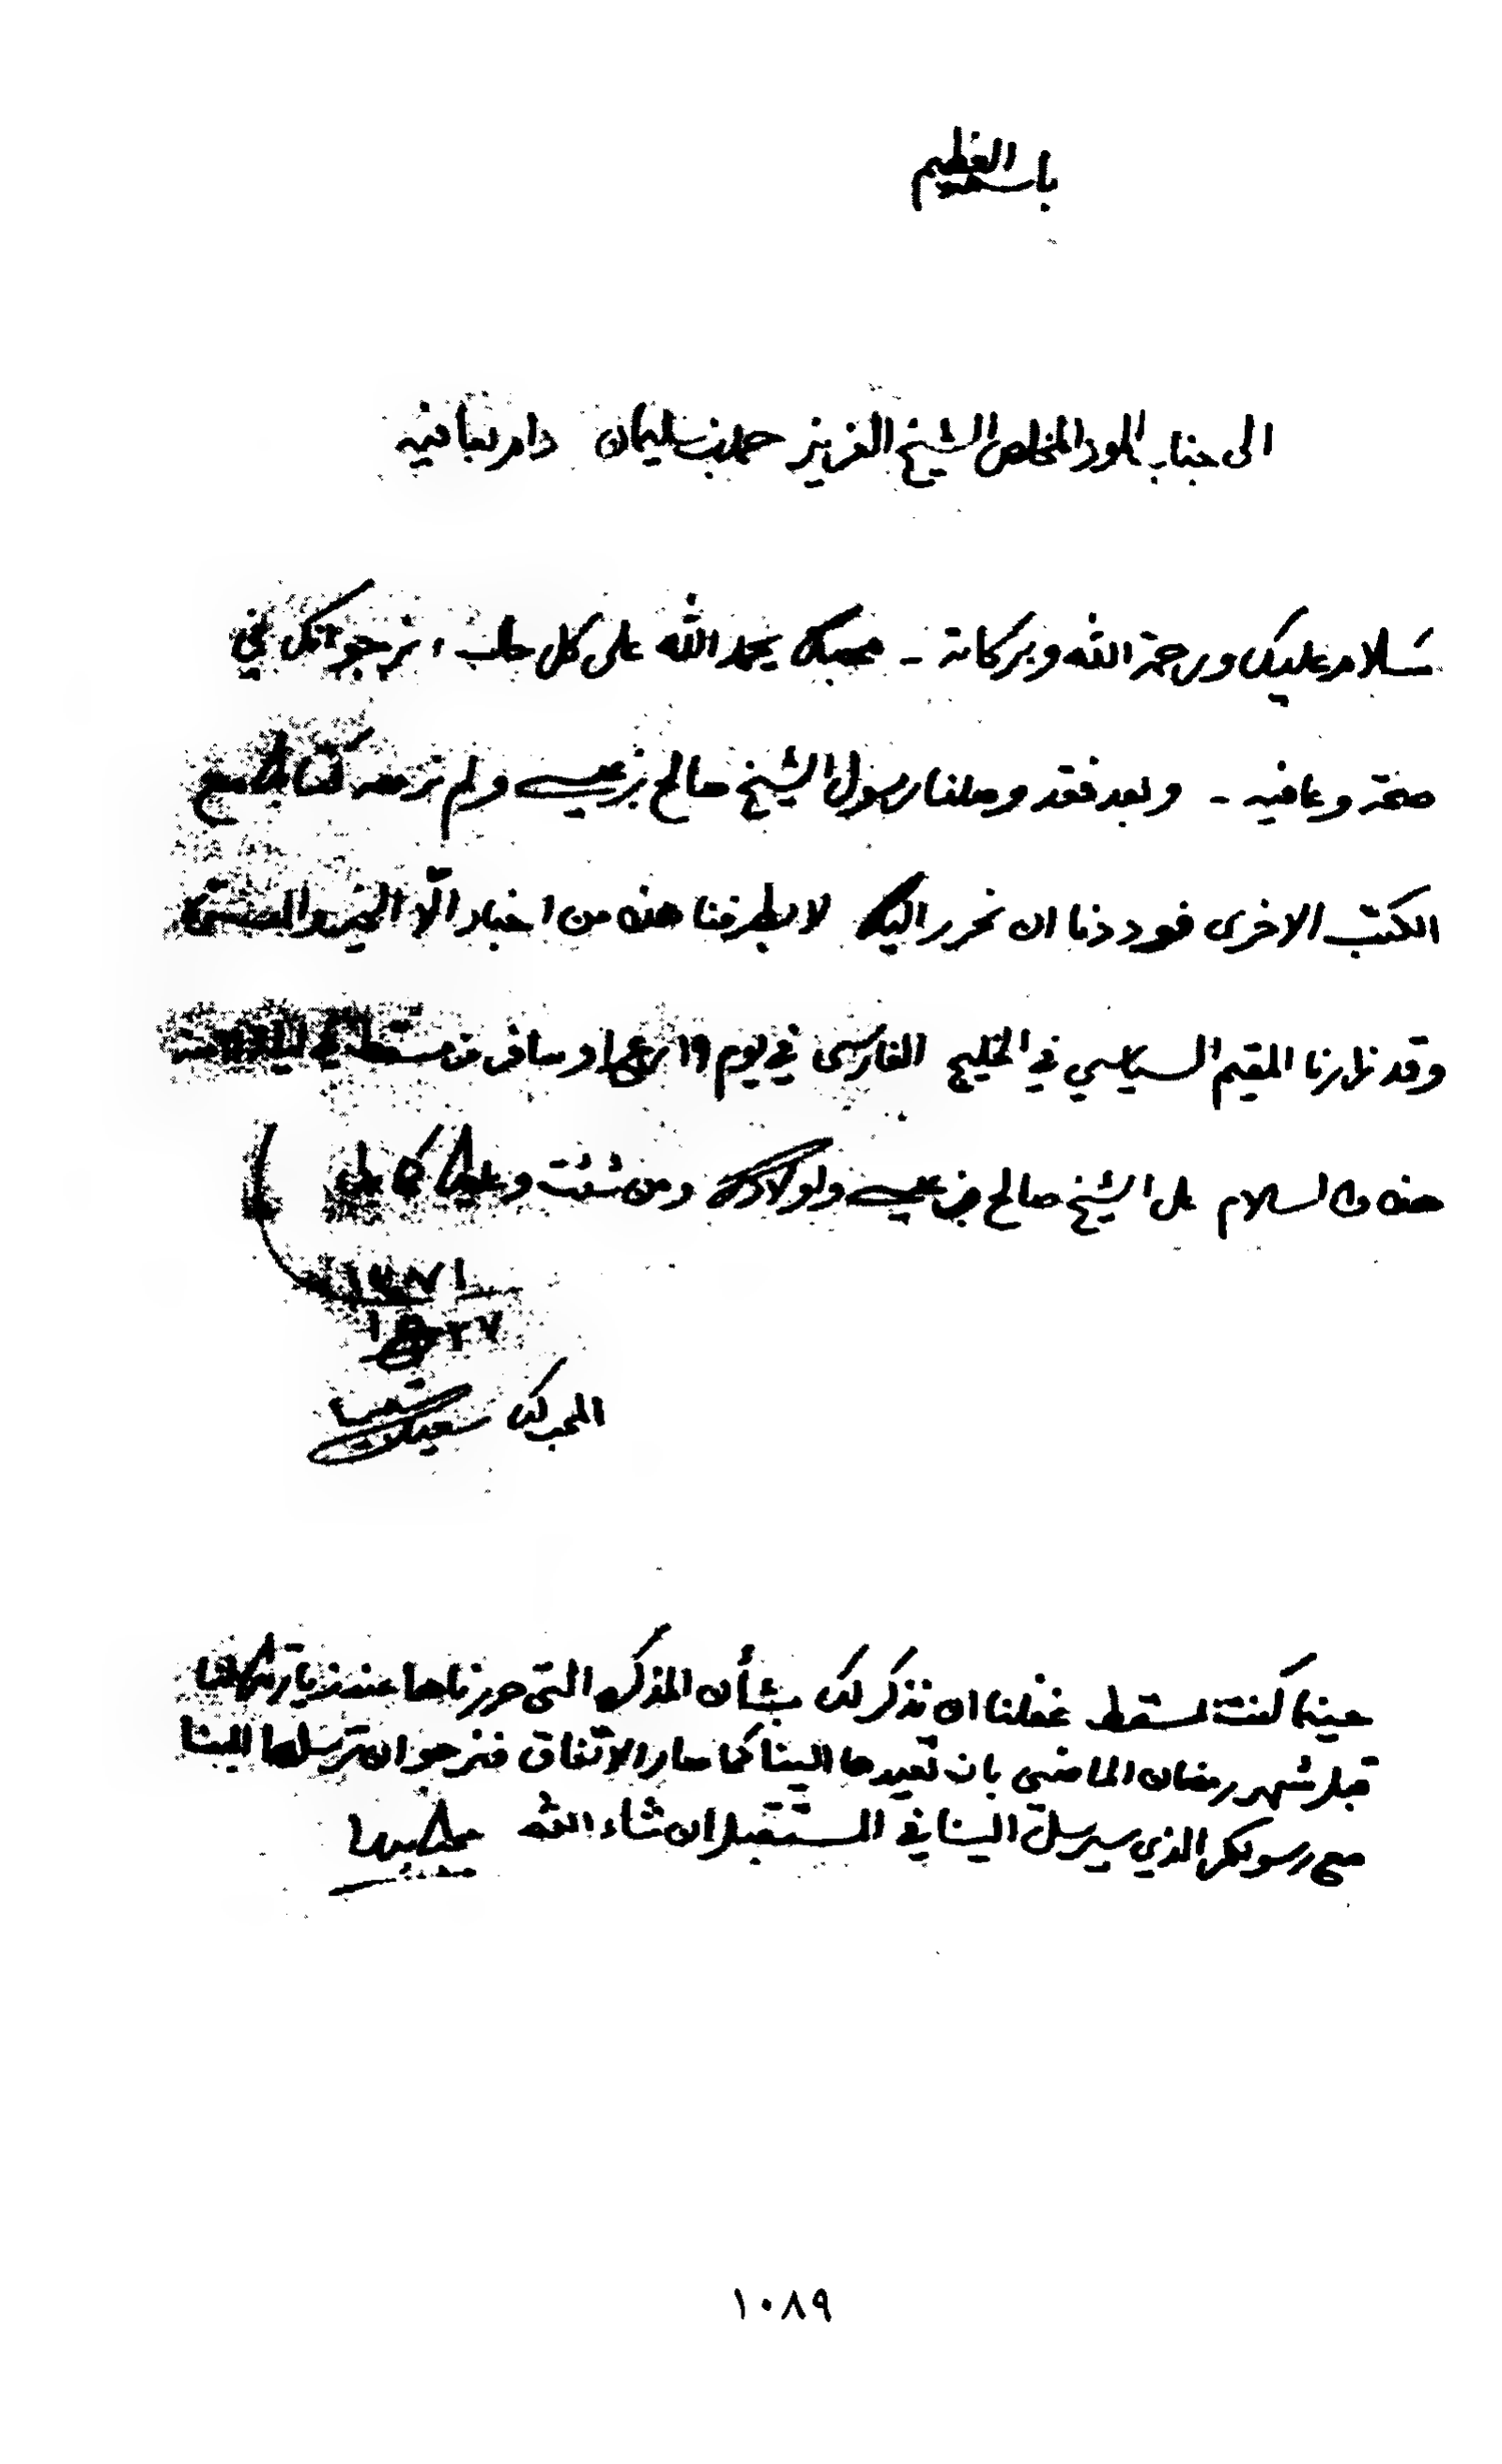 باسمه العظيم
الى جناب المود المخلص الشيخ العزيز حمد بن سليمان دام بعافيه
سلام عليك ورحمة الله وبركاته - محبك بحمد الله على كل حال نرجو انك في
صحة وعافيه - وبعد فقد وصلنا رسول الشيخ صالح بن عيسى ولم نر معه كتابا مع
الكتب الاخرى فوددنا ان نحرر اليك لا بطرفنا هذه من اخبار الّا الخير والمسرة
وقد زارنا المقيم السياسي في الخليج الفارسي في يوم ١٩ وسافر من مسقط في ليلة
هذه والسلام على الشيخ صالح بن عيسى واولادك ومن شئت
المحب لك سعيد
حينما كنت بمسقط غفلنا ان نذكر لك بشأن المذكره التي حررناها عند زيارتك لنا
قبل شهر رمضان الماضي بان تعيدها الينا كما صار الاتفاق فنرجو ان ترسلها الينا
مع رسولكم الذي سيرسل الينا في المستقبل ان شاء الله
١٠٨٩